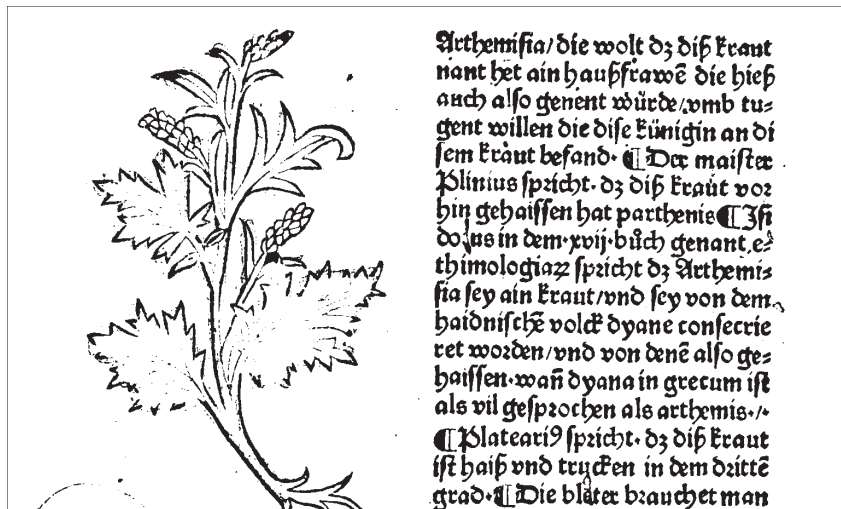 Arthemisia/ die wolt dz diß kraut
nant het ain haußfrawē die hieß
auch also genent würde/ vmb tu⸗
gent willen die dise künigin an di
sem kraut befand· ¶ Der maister
Plinius spricht· dz diß kraut vor
hin gehaissen hat parthenis ¶ Isi
dorus in dem·xvij·bůch genant e⸗
thimologiaꝝ spricht dz Arthemi⸗
sia sey ain kraut/vnd sey von dem
haidnischē volck dyane consecrie
ret worden/vnd von denē also ge⸗
haissen·wañ dyana in grecum ist
als vil gesprochen als arthemis·/·
¶ Plateariꝰ spricht· dz diß kraut
ist haiß vnd trucken in dem drittē
grad·¶ Die bleter brauchet man